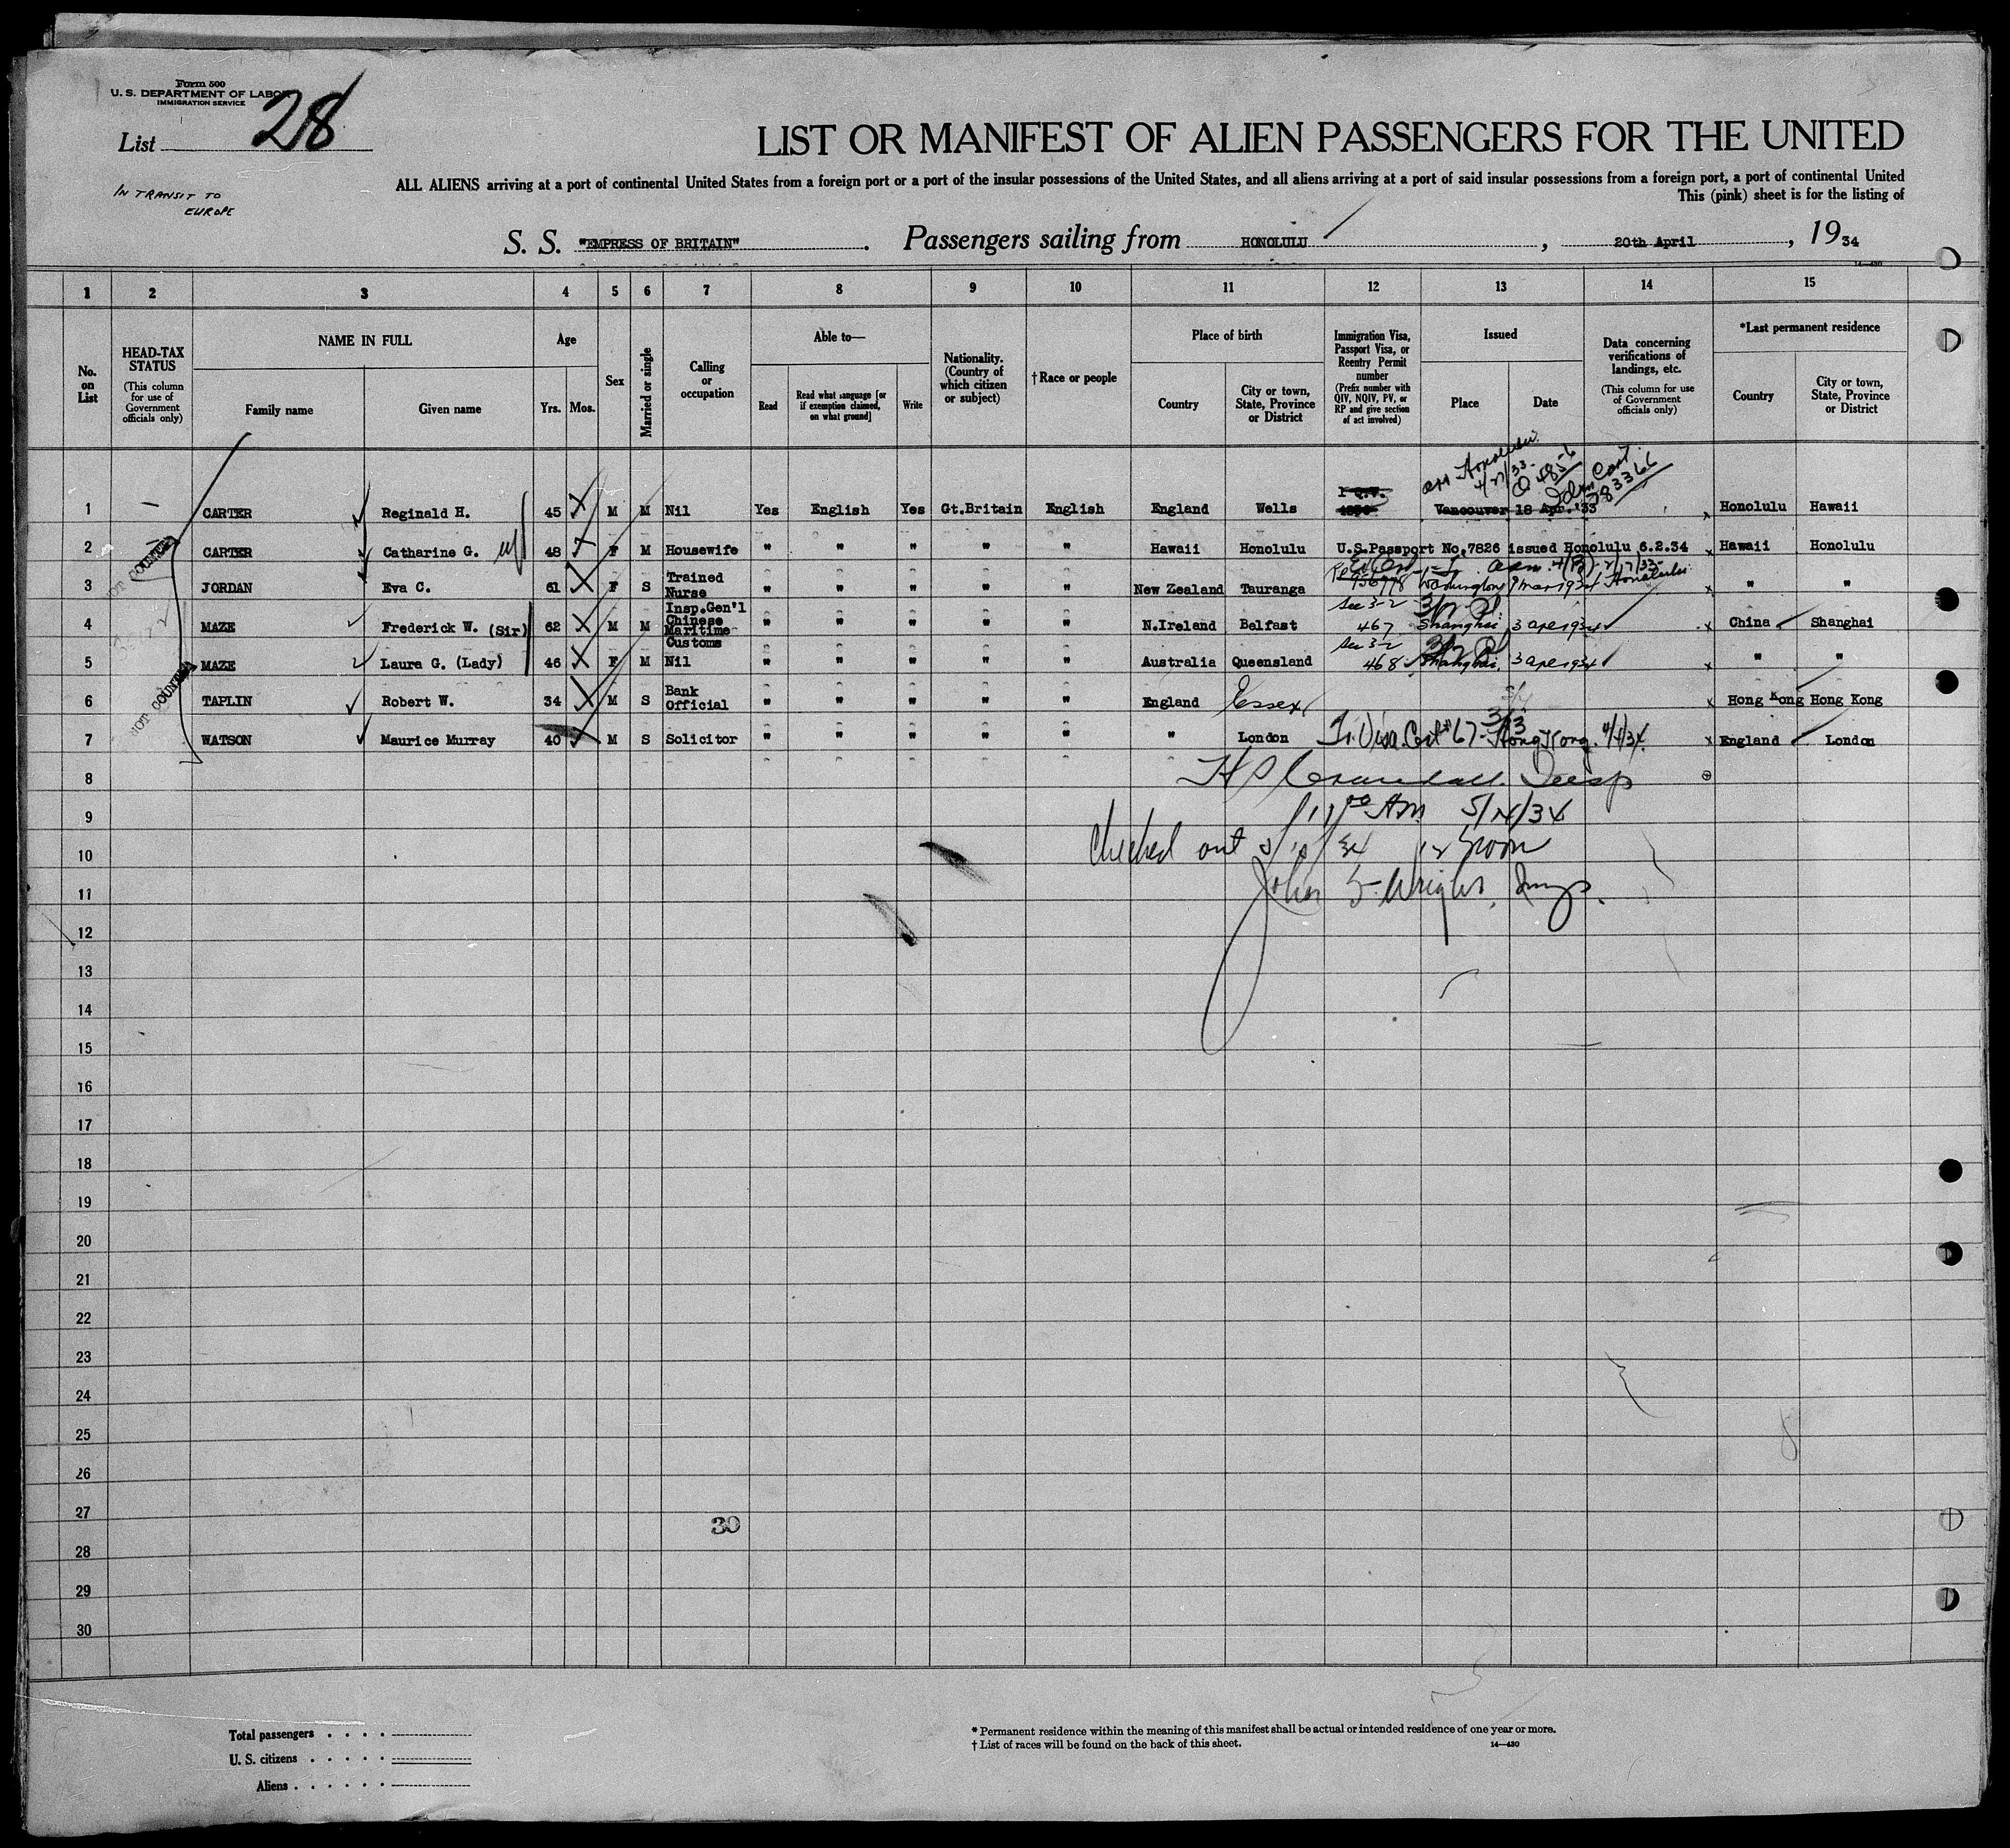 Form 500
U. S. DEPARTMENT OF LABOR
IMMIGRATION SERVICE
List 28
IN TRANSIT TO
EUROPE
LIST OR MANIFEST OF ALIEN PASSENGERS FOR THE UNITED
ALL ALIENS arriving at a port of continental United States from a foreign port or a port of the insular possessions of the United States, and all aliens arriving at a port of said insular possessions from a foreign port, a port of continental United
This (pink) sheet is for the listing of
S. S. "EMPRESS OF BRITAIN" . Passengers sailing from HONOLULU , 20th April , 19 34
14—430
1 2 3 4 5 6 7 8 9 10 11 12 13 14 15
No. on List
HEAD-TAX STATUS (This column for use of Government officials only)
NAME IN FULL
Family name Given name
Age
Yrs. Mos.
Sex
Married or single
Calling or occupation
Able to—
Read
Read what language [or if exemption claimed, on what ground]
Write
Nationality. (Country of which citizen or subject)
†Race or people
Place of birth
Country
City or town, State, Province or District
Immigration Visa, Passport Visa, or Reentry Permit number (Prefix number with QIV, NQIV, PV, or RP and give section of act involved)
Issued
Place Date
Data concerning verifications of landings, etc. (This column for use of Government officials only)
*Last permanent residence
Country
City or town, State, Province or District
arr Honolulu
4/27/33
Iden Card
783366
1 CARTER Reginald H. 45 M M Nil Yes English Yes Gt.Britain English England Wells Vancouver 18 Apr. '33 Honolulu Hawaii
2 CARTER Catharine G. 48 F M Housewife " " " " " Hawaii Honolulu U.S.Passport No.7826 issued Honolulu 6.2.34 Hawaii Honolulu
NOT COUNTED
3 JORDAN Eva C. 61 F S Trained Nurse " " " " " New Zealand Tauranga RP 956778 Washington 9 Mar 1934 Honolulu " "
4 MAZE Frederick W. (Sir) 62 M M Insp.Gen'l Chinese Maritime Customs " " " " " N.Ireland Belfast Sec 3-2 467 Shanghai 3 Apr 1934 China Shanghai
5 MAZE Laura G. (Lady) 46 F M Nil " " " " " Australia Queensland Sec 3-2 468 Shanghai 3 Apr 1934 " "
NOT COUNTED
6 TAPLIN Robert W. 34 M S Bank Official " " " " " England Essex Hong Kong Hong Kong
7 WATSON Maurice Murray 40 M S Solicitor " " " " " " London Tr. Visa Cert # 67 - Hong Kong 4/4/34 England London
8
9 11 00 AM 5/14/34
10 Checked out 12 Noon
11 John Wright, Insp.
12
13
14
15
16
17
18
19
20
21
22
23
24
25
26
27 30
28
29
30
Total passengers . . . .
U. S. citizens . . . . .
Aliens . . . . . .
* Permanent residence within the meaning of this manifest shall be actual or intended residence of one year or more.
† List of races will be found on the back of this sheet.
14—430